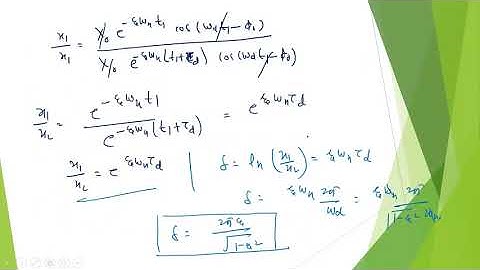 x₁/x₁ = X₀ e^{-ξωₙt₁} cos(ωₙt₁ - φ₀) / X₀ e^{-ξωₙ(t₁+τ_d)} cos(ω_d t₁ - φ₀)
x₁/x₂ = e^{-ξωₙt₁} / e^{-ξωₙ(t₁+τ_d)} = e^{ξωₙτ_d}
x₁/x₂ = e^{ξωₙτ_d}
δ = ln(x₁/x₂) = ξωₙτ_d
δ = ξωₙ 2π/ω_d = ξωₙ 2π / √(1-ξ²) ωₙ
δ = 2πξ / √(1-ξ²)